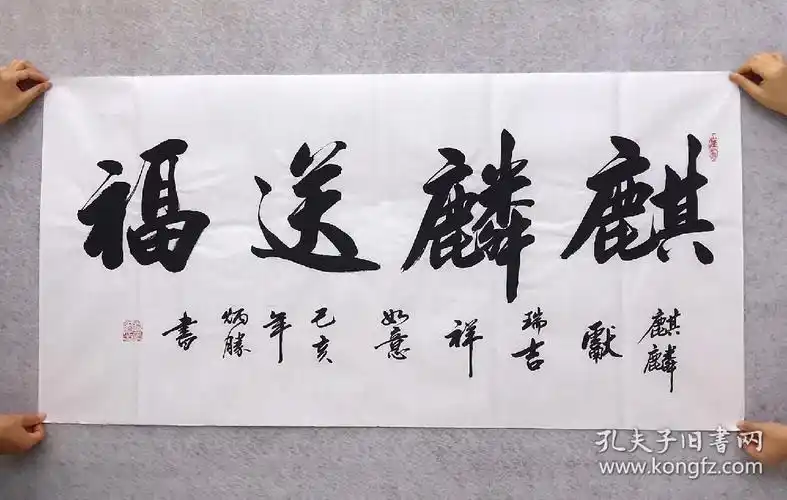 麒麟送福
麒麟獻瑞吉祥如意己亥年炳勝書
孔夫子旧書网
www.kongfz.com